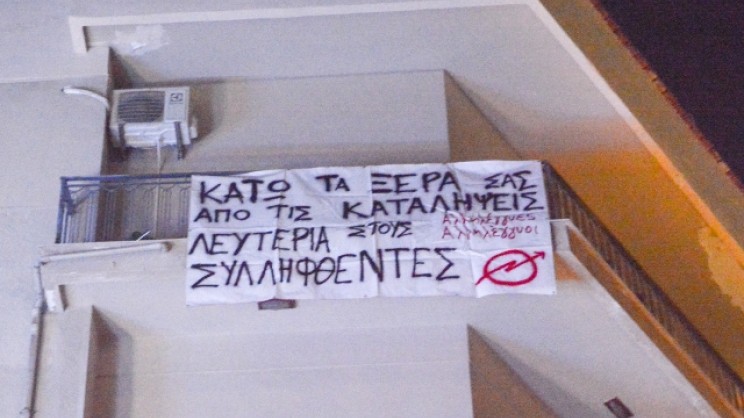 ΚΑΤΩ ΤΑ ΞΕΡΑ ΣΑΣ
ΑΠΟ ΤΙΣ ΚΑΤΑΛΗΨΕΙΣ
ΛΕΥΤΕΡΙΑ ΣΤΟΥΣ Αλληλέγγυες Αλληλέγγυοι
ΣΥΛΛΗΦΘΕΝΤΕΣ